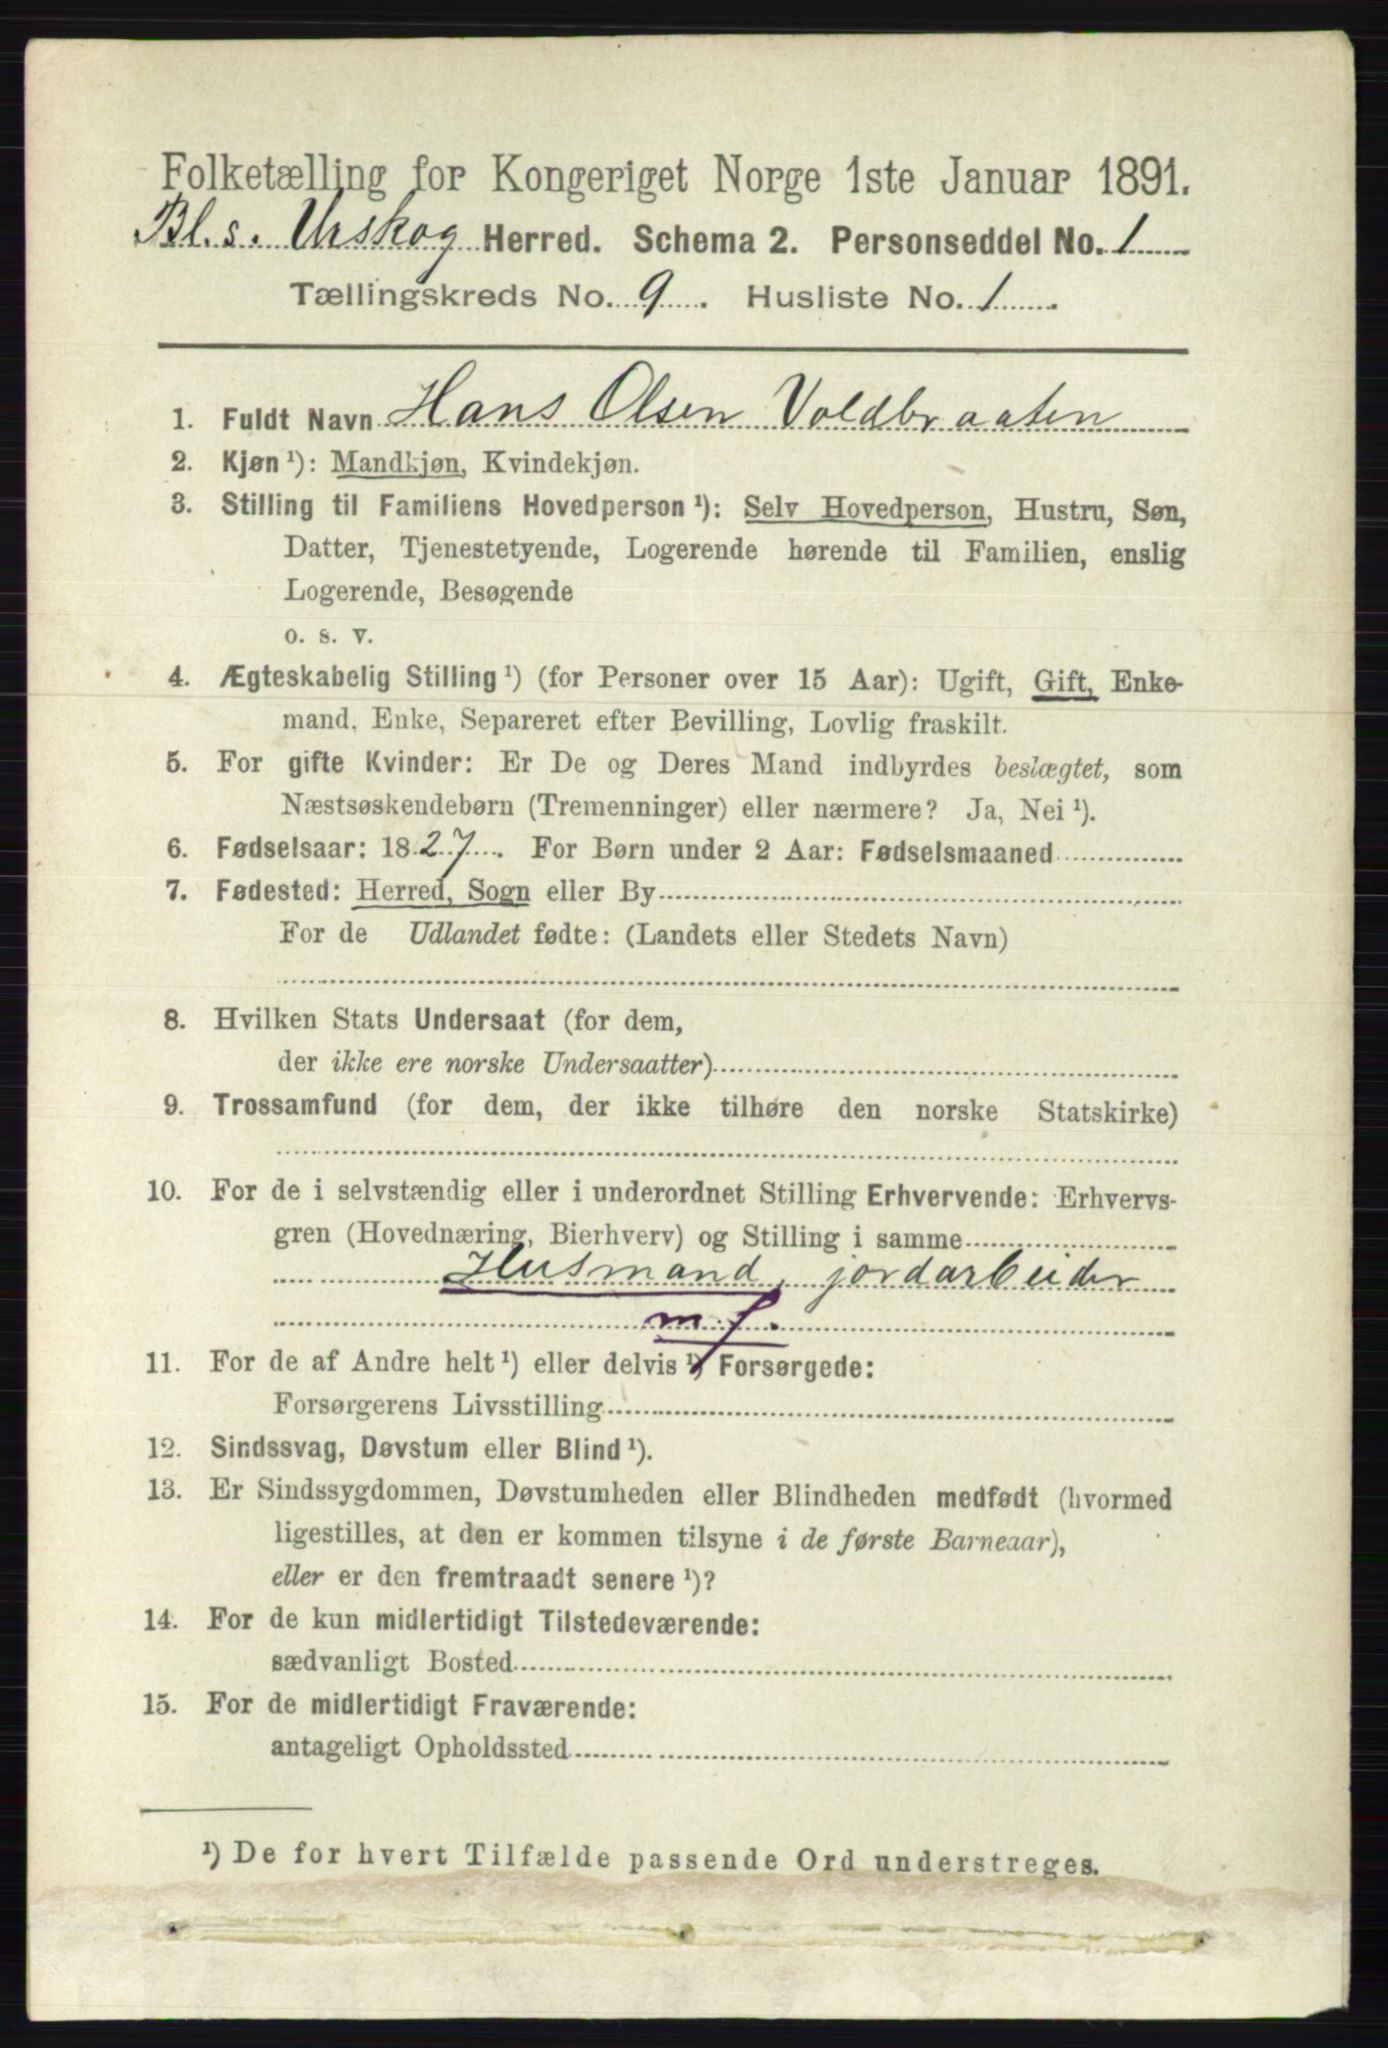 Folketælling for Kongeriget Norge 1ste Januar 1891.
Bl.s. Urskog Herred. Schema 2. Personseddel No. 1
Tællingskreds No. 9. Husliste No. 1.
1. Fuldt Navn Hans Olsen Voldbraaten
2. Kjøn ¹): Mandkjøn, Kvindekjøn.
3. Stilling til Familiens Hovedperson ¹): Selv Hovedperson, Hustru, Søn,
Datter, Tjenestetyende, Logerende hørende til Familien, enslig
Logerende, Besøgende
o. s. v.
4. Ægteskabelig Stilling ¹) (for Personer over 15 Aar): Ugift, Gift, Enke-
mand, Enke, Separeret efter Bevilling, Lovlig fraskilt.
5. For gifte Kvinder: Er De og Deres Mand indbyrdes beslægtet, som
Næstsøskendebørn (Tremenninger) eller nærmere? Ja, Nei ¹).
6. Fødselsaar: 1827. For Børn under 2 Aar: Fødselsmaaned
7. Fødested: Herred, Sogn eller By
For de Udlandet fødte: (Landets eller Stedets Navn)
8. Hvilken Stats Undersaat (for dem,
der ikke ere norske Undersaatter)
9. Trossamfund (for dem, der ikke tilhøre den norske Statskirke)
10. For de i selvstændig eller i underordnet Stilling Erhvervende: Erhvervs-
gren (Hovednæring, Bierhverv) og Stilling i samme
Husmand, jordarbeider
m. J.
11. For de af Andre helt ¹) eller delvis ¹) Forsørgede:
Forsørgerens Livsstilling
12. Sindssvag, Døvstum eller Blind ¹).
13. Er Sindssygdommen, Døvstumheden eller Blindheden medfødt (hvormed
ligestilles, at den er kommen tilsyne i de første Barneaar),
eller er den fremtraadt senere ¹)?
14. For de kun midlertidigt Tilstedeværende:
sædvanligt Bosted
15. For de midlertidigt Fraværende:
antageligt Opholdssted
¹) De for hvert Tilfælde passende Ord understreges.